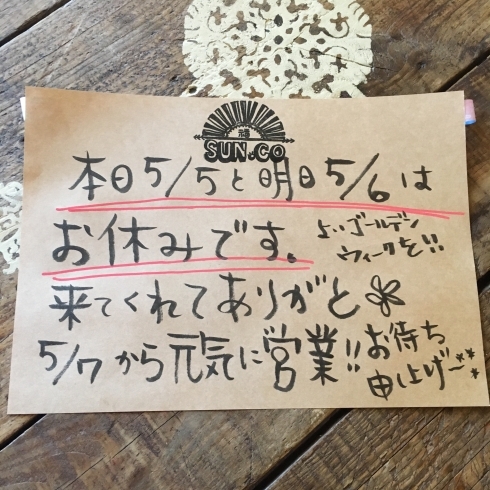 SUN.CO
本日5/5と明日5/6は
お休みです。
よいゴールデン
ウィークを!!
来てくれてありがと
5/7から元気に営業!!
お待ち
申上げ〜